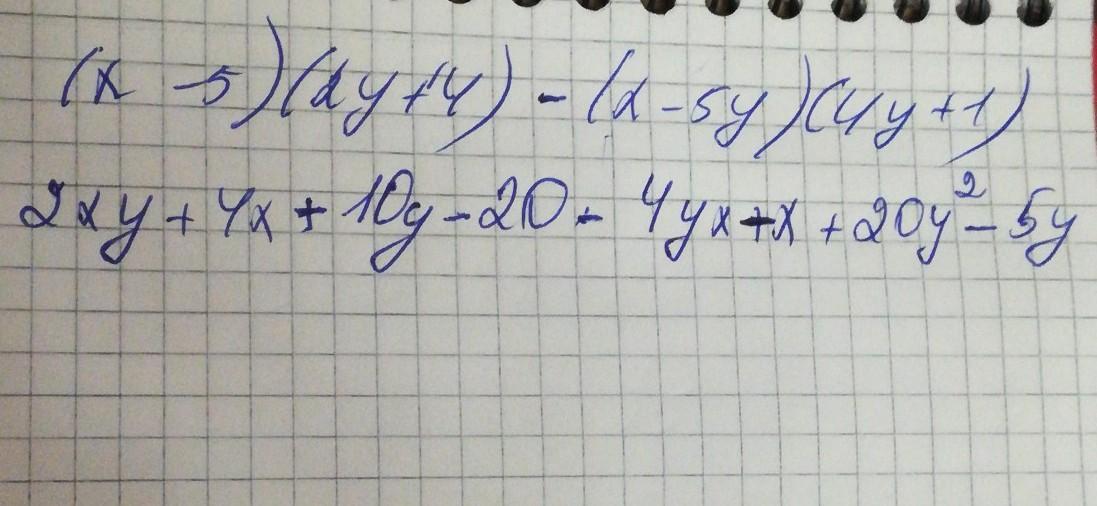 (x - 5)(2y + 4) - (x - 5y)(4y + 1)
2xy + 4x + 10y - 20 - 4yx + x + 20y² - 5y